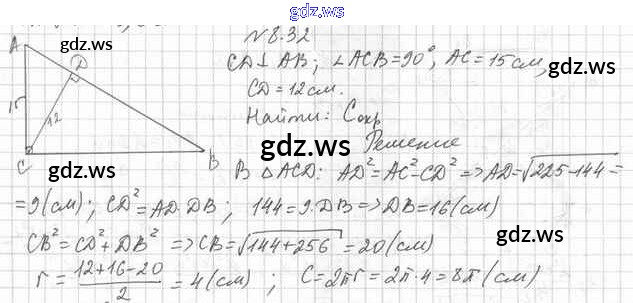 gdz.ws
N 8.32
A
gdz.ws
D
CD⊥AB; ∠ACB=90°, AC=15см,
gdz.ws
CD=12см.
15
12
Найти: Cокр
gdz.ws
Решение
C
gdz.ws
B
В △ACD: AD²=AC²-CD² => AD=√225-144 =
=9(см); CD²=AD·DB; 144=9·DB => DB=16(см)
gdz.ws
CB²=CD²+DB² => CB=√144+256 = 20(см)
gdz.ws
r = (12+16-20)/2 = 4(см); C=2πr=2π·4=8π(см)
gdz.ws
gdz.ws